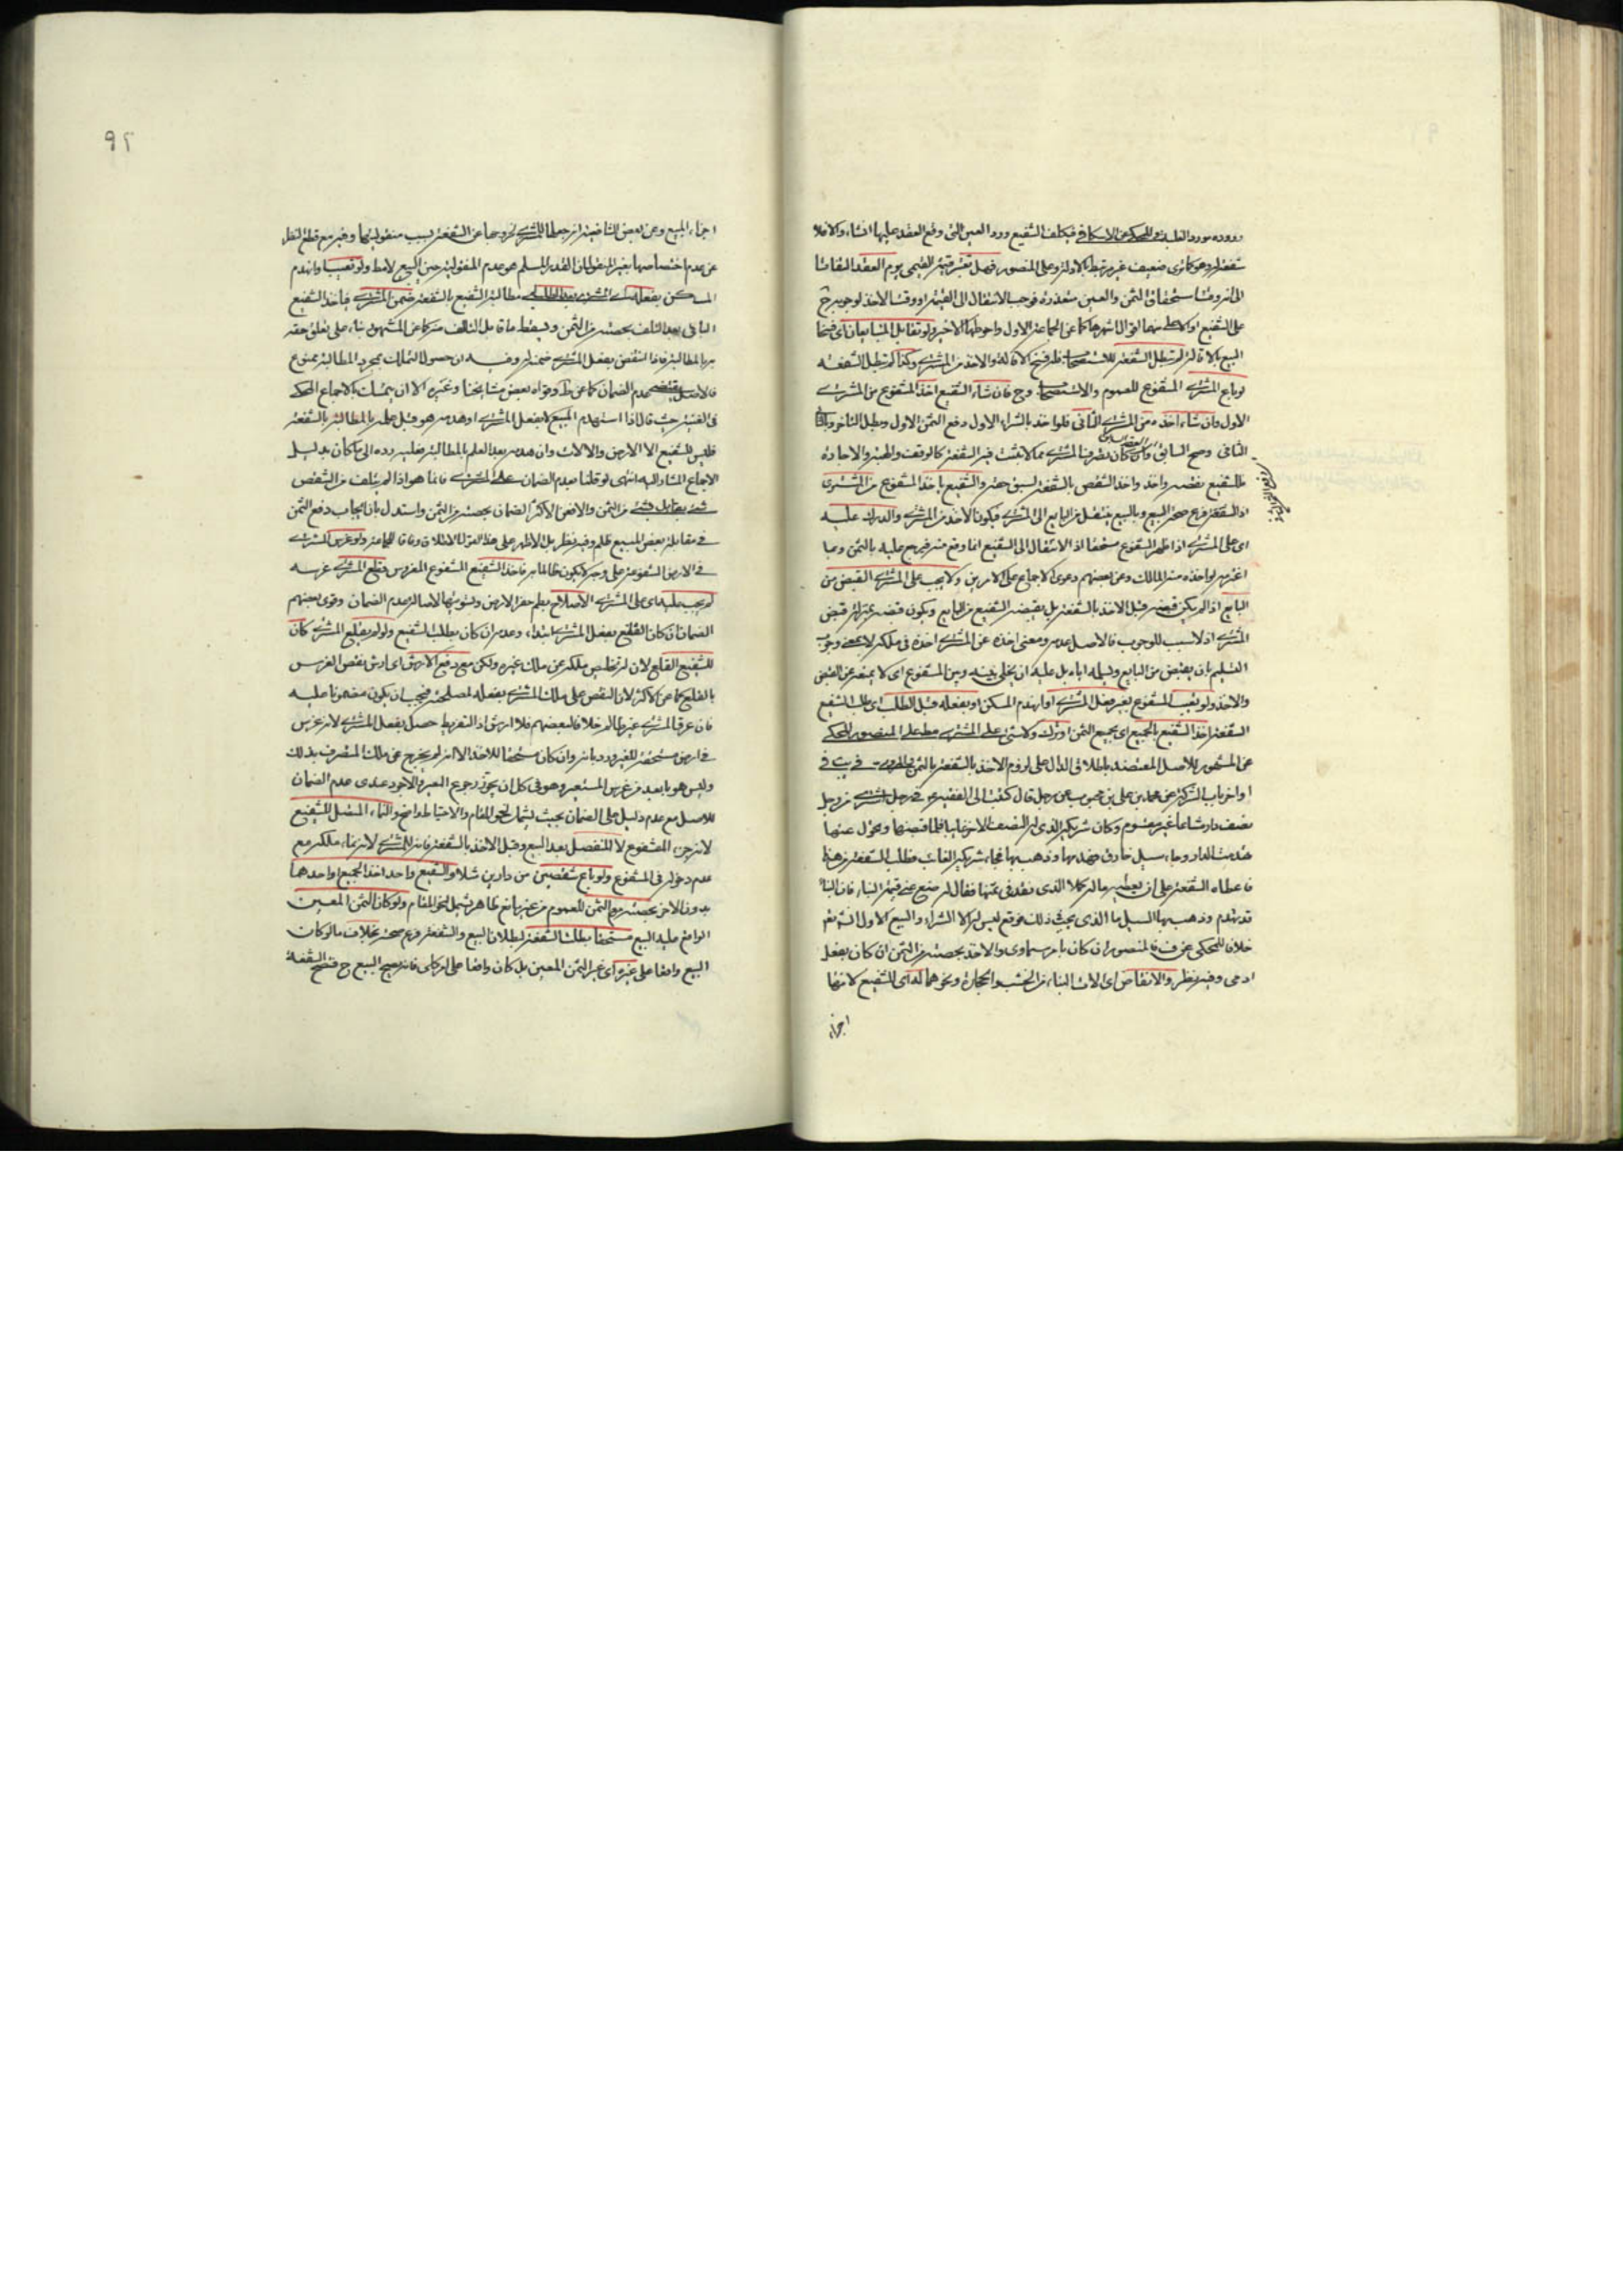 شفعة له وهو كما ترى ضعيف غير مرتبط بالاول وعلى المنصور فهل تعتبر قيمة القيمي يوم العقد التفاتا
الى انه وقت استحقاق الثمن والعين متعذرة فوجب الانتقال الى القيمة او وقت الاخذ لوجوبه ح
على الشفيع او الاعلى منهما اقوال اشهرها كما عن جماعة الاول واحوطها الاخير ولو تقايل المتبايعان اى فسخا
البيع بالاقالة لم تبطل الشفعة للاستصحاب فله فسخ الاقالة والاخذ من المشترى وكذا لم تبطل الشفعة
لو باع المشترى المشفوع للعموم والاستصحاب وح فان شاء الشفيع اخذ المشفوع من المشترى
الاول وان شاء اخذه من المشترى الثانى فلو اخذ بالشراء الاول دفع الثمن الاول وبطل المتأخر وبالثانى
الثانى وصح السابق وان كان تصرف المشترى مما لا تثبت فيه الشفعة كالوقف والهبة والاجارة
فللشفيع نقضه واخذ الشقص بالشفعة لسبق حقه والشفيع ياخذ المشفوع من المشترى
اذ الشفعة فرع صحة البيع وبالبيع ينتقل من البايع الى المشترى فيكون الاخذ من المشترى والدرك عليه
اى على المشترى اذا ظهر المشفوع مستحقا اذ الانتقال الى الشفيع انما وقع منه فيرجع عليه بالثمن وبما
اغترمه لو اخذه منه المالك وعن بعضهم دعوى الاجماع على الامرين ولا يجب على المشترى القبض من
البايع اذا لم يكن قبضه قبل الاخذ بالشفعة بل يقبضه الشفيع من البايع ويكون قبضه بمنزلة قبض
المشترى اذ لا سبب للوجوب فالاصل عدمه ومعنى اخذه عن المشترى اخذه فى ملكه لا بمعنى وجوب
التسليم بان يقبض من البايع ويسلمه اياه بل عليه ان يخلى بينه وبين المشفوع اى لا يمنعه عن القبض
والاخذ ولو تعيب المشفوع بغير فعل المشترى او انهدم المسكن او بفعله قبل الطلب اى طلب الشفيع
الشفعة اخذ الشفيع بالجميع اى بجميع الثمن او ترك ولا شئ على المشترى مط على المنصور المحكى
عن المشهور للاصل المعتضد باطلاق الدال على لزوم الاخذ بالشفعة بالثمن والمروى فى يب فى
اواخر باب الشركة عن محمد بن على بن محبوب عن رجل قال كتبت الى الفقيه ع فى رجل اشترى من رجل
نصف دار مشاعا غير مقسوم وكان شريكه الذى له النصف الاخر غايبا فلما قبضها وتحول عنها
تهدمت الدار وجاء سيل خارق فهدمها وذهب بها فجاء شريكه الغائب فطلب الشفعة من هذا
فاعطاه الشفعة على ان يعطيه ماله كملا الذى نقد فى ثمنها فقال له ضع عنى قيمة البناء فان البناء
قد تهدم وذهب به السيل ما الذى يجب فى ذلك فوقع ليس له الا الشراء والبيع الاول انشاءالله نعم
خلافا للمحكى عن ف فالمنصور ان كان بامر سماوى والاخذ بحصته من الثمن ان كان بفعل
ادمى وفيه نظر والانقاض اى الات البناء من الخشب والحجارة ونحوهما له اى للشفيع لانها
اجزاء
٩٢
اجزاء المبيع وعن بعض الشافعية انه جعلها للمشترى لخروجها عن الشفعة بسبب منقوليتها وفيه مع قطع النظر
عن عدم اختصاصها بغير المنقول ان القدر المسلم هو عدم المنقولية حين البيع لا مط ولو تعيب او انهدم
المسكن بفعله اى المشترى بعد مطالبة الشفيع بالشفعة ضمن المشترى فياخذ الشفيع
الباقى بعد التلف بحصته من الثمن ويسقط ما قابل التالف منه كما عن المشهور بناء على تعلق حقه
به بالمطالبة فاذا انتقض بفعل المشترى ضمنه له وفيه ان حصول التملك بمجرد المطالبة ممنوع
فالاصل يقتضى عدم الضمان كما عن ط وقواه بعض مشايخنا وغيره الا ان يتمسك بالاجماع المحكى
فى الغنية حيث قال اذا استهدم المبيع لا بفعل المشترى او هدمه هو قبل علمه بالمطالبة بالشفعة
فليس للشفيع الا الارض والالات وان هدمه بعد العلم بالمطالبة فعليه رده الى ما كان بدليل
الاجماع المشار اليه انتهى ولو قلنا بعدم الضمان على المشترى فانما هو اذا لم يتلف من الشقص
شئ يقابل بشئ من الثمن والا فعن الاكثر الضمان بحصته من الثمن واستدل بان ايجاب دفع الثمن
فى مقابلة بعض المبيع ظلم وفيه نظر بل الاظهر على هذا القول الاطلاق وفاقا لجماعة ولو غرس المشترى
فى الارض المشفوعة على وجه لا يكون ظالما به فاخذ الشفيع المشفوع المغروس فقلع المشترى غرسه
لم يجب عليه اى على المشترى الاصلاح بطم حفر الارض وتسويتها لاصالة عدم الضمان وقوى بعضهم
الضمان ان كان القلع بفعل المشترى ابتداء وعدمه ان كان بطلب الشفيع ولو لم يقلع المشترى كان
للشفيع القلع لان له تخليص ملكه عن ملك غيره ولكن مع دفع الارش اى ارش نقص الغرس
بالقلع كما عن الاكثر لان النقص على ملك المشترى بفعله لمصلحته فيجب ان يكون مضمونا عليه
فان عرق المشترى غير ظالم خلافا لبعضهم فلا ارش اذ التفريط حصل بفعل المشترى لانه غرس
فى ارض مستحقة للغير ورد بانه وان كان مستحقا للاخذ الا انه لم يخرج عن ملك المتصرف بذلك
وليس هو بابعد من غرس المستعير وهو فى كل ان يجوز رجوع المعير والاجود عندى عدم الضمان
للاصل مع عدم دليل على الضمان بحيث يشمل نحو المقام والاحتياط واضح والنماء المتصل للشفيع
لانه جزء المشفوع لا المنفصل بعد البيع وقبل الاخذ بالشفعة فانه للمشترى لانه نماء ملكه مع
عدم دخوله فى المشفوع ولو باع شقصين من دارين مثلا والشفيع واحد اخذ الجميع او احدهما
بدون الاخر بحصته من الثمن للعموم من غير مانع ظاهر يشمل نحو المقام ولو كان الثمن المعين
الواقع عليه البيع مستحقا بطلت الشفعة لبطلان البيع والشفعة فرع صحته بخلاف ما لو كان
البيع واقعا على غيره اى غير الثمن المعين بل كان واقعا على امر كلى فانه يصح البيع ح فتصح الشفعة